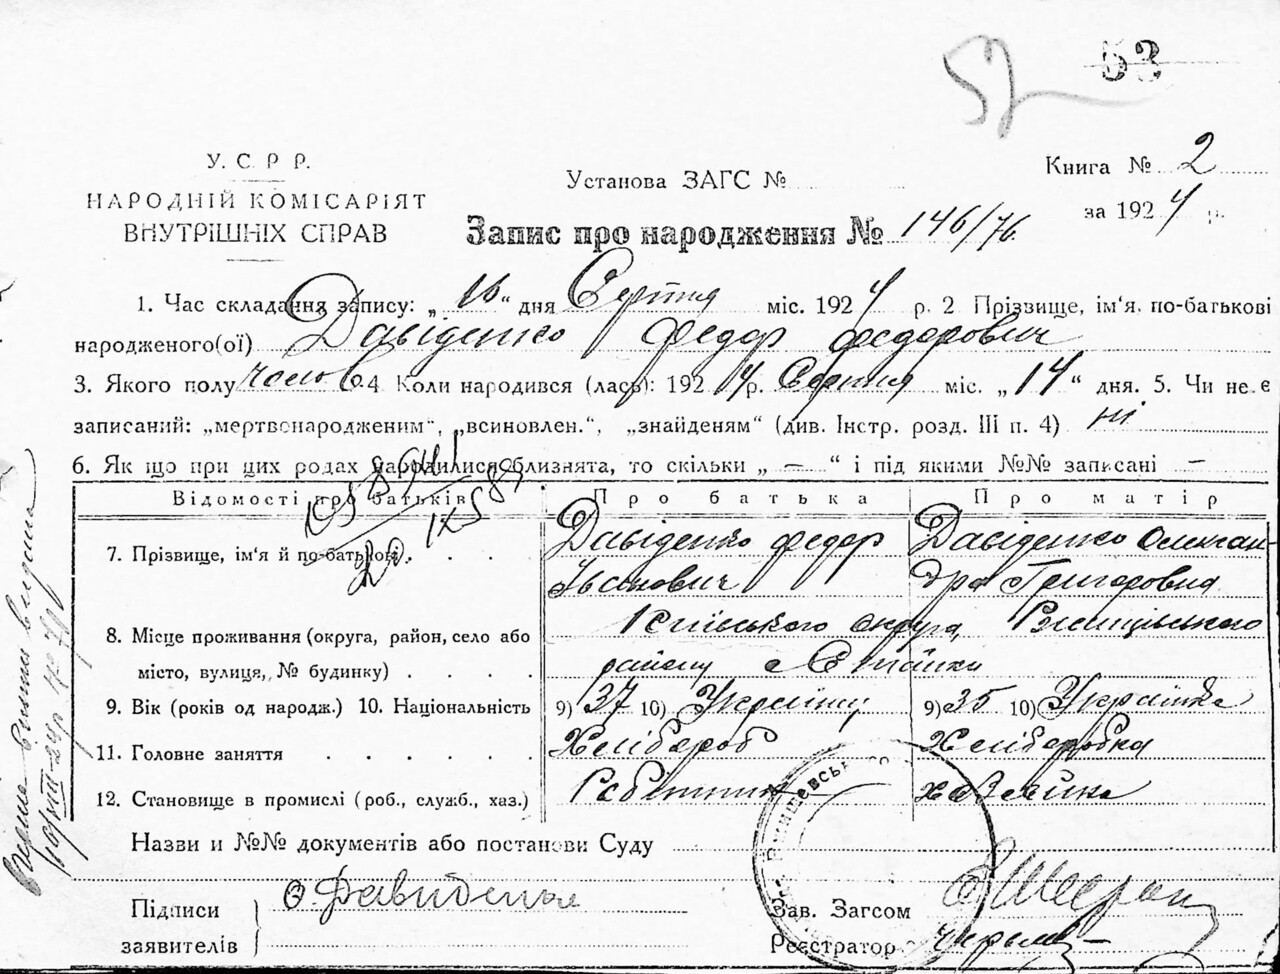 52 53
У. С. Р Р.
НАРОДНІЙ КОМІСАРІЯТ
ВНУТРІШНІХ СПРАВ
Установа ЗАГС №
Книга № 2
за 1924 р.
Запис про народження № 146/76.
1. Час складання запису: „16“ дня Серпня міс. 1924 р. 2 Прізвище, ім'я, по-батькові
народженого(ої) Давіденко Федор Федорович
3. Якого полу чолов. 4 Коли народився (лась): 1924 р. Серпня міс. „14“ дня. 5. Чи не є
записаний: „мертвонародженим“, „всиновлен.“, „знайденям“ (див. Інстр. розд. III п. 4) ні
6. Як що при цих родах народилися близнята, то скільки „ — “ і під якими №№ записані —
Відомості про батьків Про батька Про матір
7. Прізвище, ім'я й по-батькові . . . Давіденко Федор Давіденко Олексан-
Іванович дра Григоровна
8. Місце проживання (округа, район, село або Київського округа, Ржищівського
місто, вулиця, № будинку) . . . . району с Стайки
9. Вік (років од народж.) 10. Національність 9) 37 10) Українец 9) 35 10) Українка
11. Головне заняття . . . . . . Хлібороб Хліборобка
12. Становище в промислі (роб., служб., хаз.) Робітник хозяйка
Назви и №№ документів або постанови Суду
Підписи
заявителів
Ѳ. Давиденко
Зав. Загсом
Реєстратор